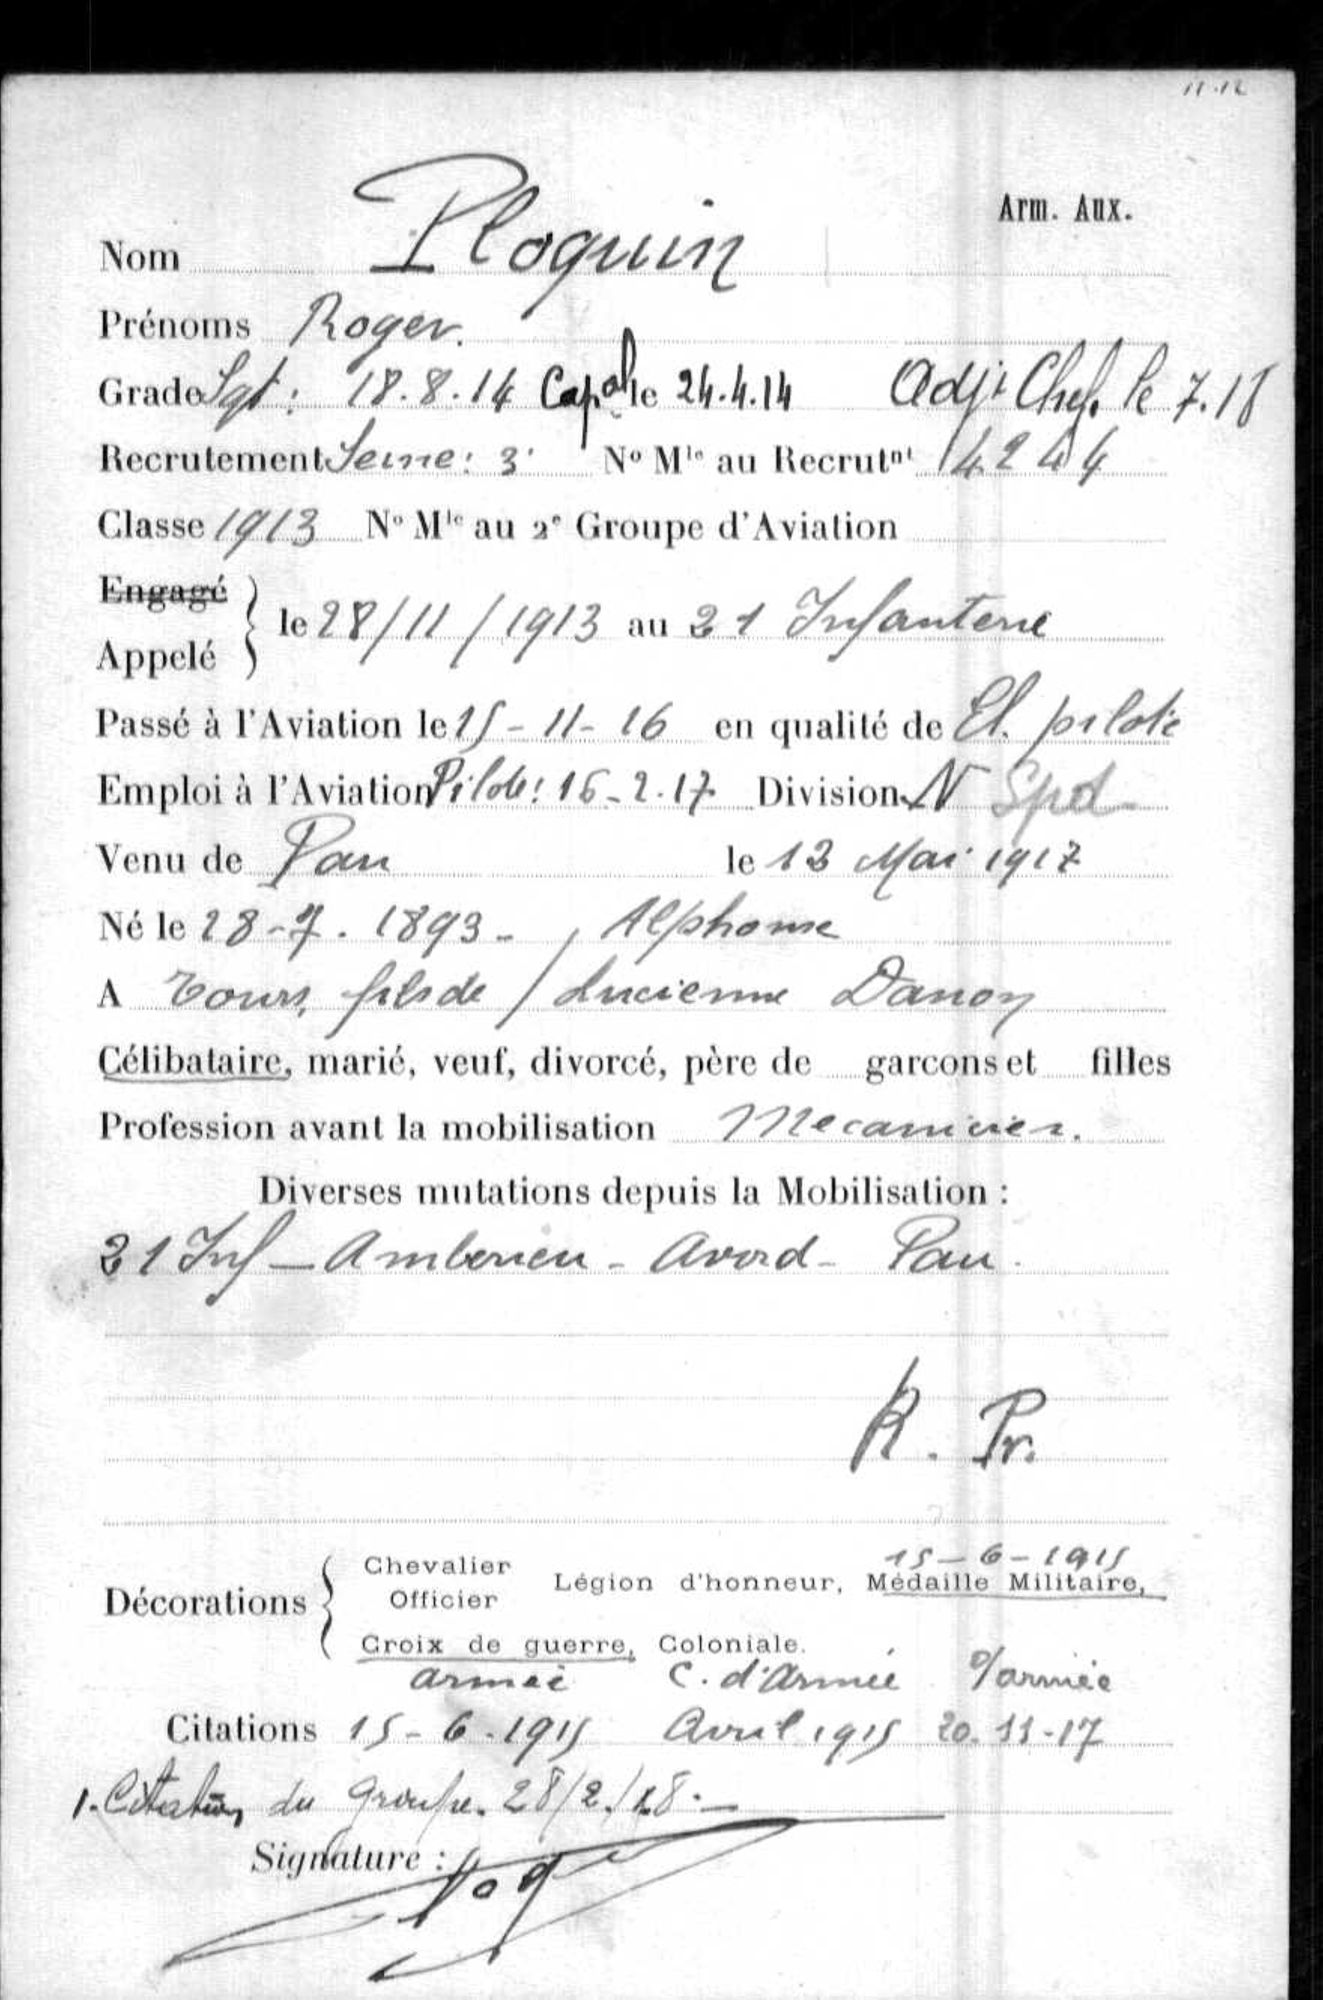 11.12
Arm. Aux.
Nom Ploquin
Prénoms Roger.
Grade Sgt: 18.8.14 Capal le 24.4.14 Adjt Chef. le 7.18
Recrutement Seine: 3e No Mle au Recrutnt 4244
Classe 1913 No Mle au 2e Groupe d'Aviation
Engagé
Appelé } le 28/11/1913 au 21 Infanterie
Passé à l'Aviation le 15-11-16 en qualité de El. pilote
Emploi à l'Aviation Pilote: 16-2.17 Division N Spd
Venu de Pau le 13 Mai 1917
Né le 28-7.1893- Alphonse
A Tours, fils de / Lucienne Danoy
Célibataire, marié, veuf, divorcé, père de garcons et filles
Profession avant la mobilisation Mecanicien.
Diverses mutations depuis la Mobilisation :
21 Inf - Amberieu - Avord - Pau.
R. Pr.
15-6-1915
Décorations { Chevalier Officier Légion d'honneur, Médaille Militaire,
Croix de guerre, Coloniale.
armée C. d'Armée o/armée
Citations 15-6.1915 Avril 1915 20.11-17
1. Citation du Groupe. 28/2/18.-
Signature :